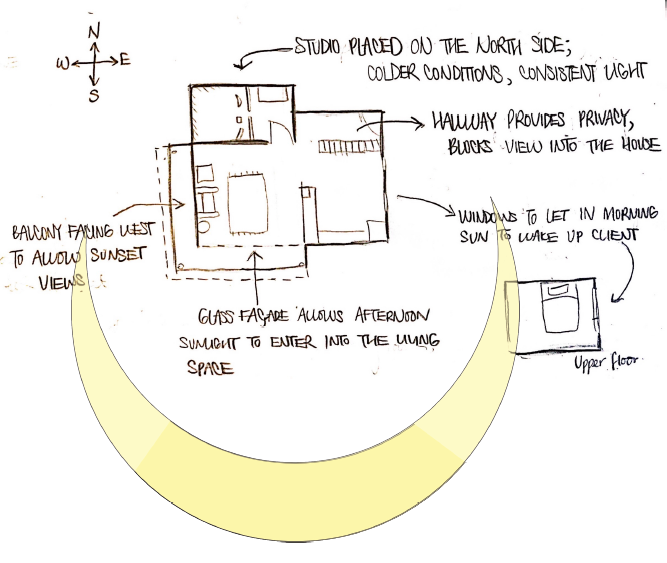 N
W E
S
STUDIO PLACED ON THE NORTH SIDE;
COLDER CONDITIONS, CONSISTENT LIGHT
HALLWAY PROVIDES PRIVACY,
BLOCKS VIEW INTO THE HOUSE
WINDOWS TO LET IN MORNING
SUN TO WAKE UP CLIENT
BALCONY FACING WEST
TO ALLOW SUNSET
VIEWS
GLASS FAÇADE ALLOWS AFTERNOON
SUNLIGHT TO ENTER INTO THE LIVING
SPACE
Upper floor